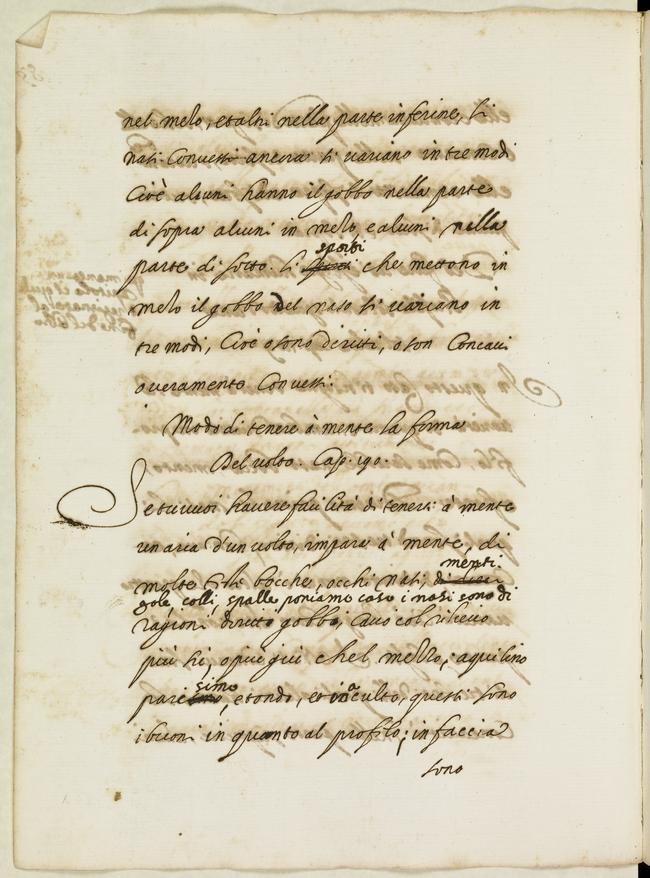 nel mezo, et altri nella parte inferiore, Li
nasi Convessi ancora si variano in tre modi
Cioè alcuni hanno il gobbo nella parte
di sopra alcuni in mezo, e alcuni nella
sporti
parte di sotto. Li che mettono in
mezo il gobbo del naso si variano in
tre modi, Cioè o sono diritti, o son Concavi
overamente Convessi.
Modo di tenere à mente la forma
Del volto. Cap. 190.
Se tu vuoi havere facilità di tenersi à mente
un aria d'un volto, impara a mente, di
menti.
molte teste bocche, occhi nasi,
gole, colli, spalle poniamo caso i nasi sono di
ragioni diritto gobbo, cavo col rilievo
più sù, o più giù chel mezzo, aquilino
simo
pari, et ondo, et in aculto, questi sono
i buoni in quanto al profilo, in faccia
sono